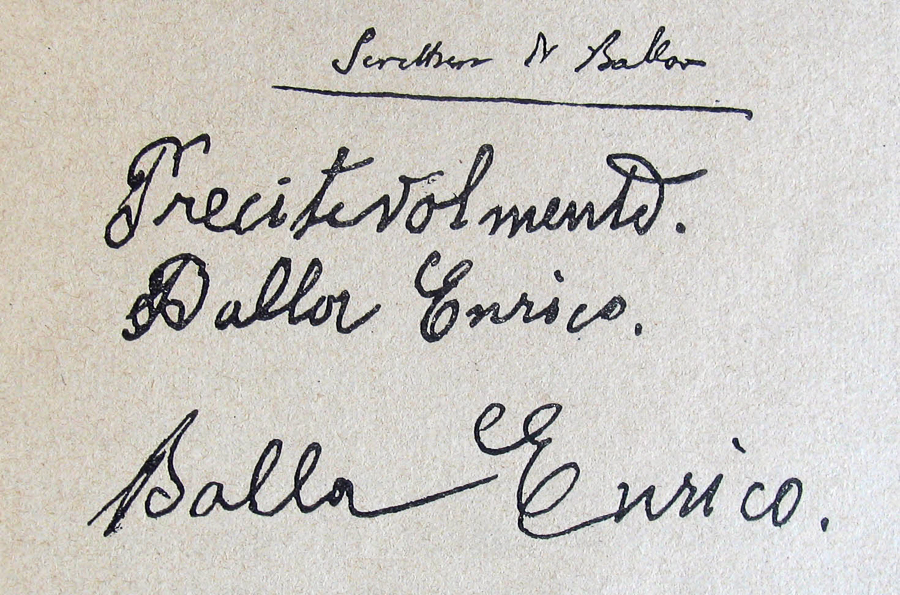 Scrittura di Ballor
Trecitevolmente.
Ballor Enrico.
Balla Enrico.